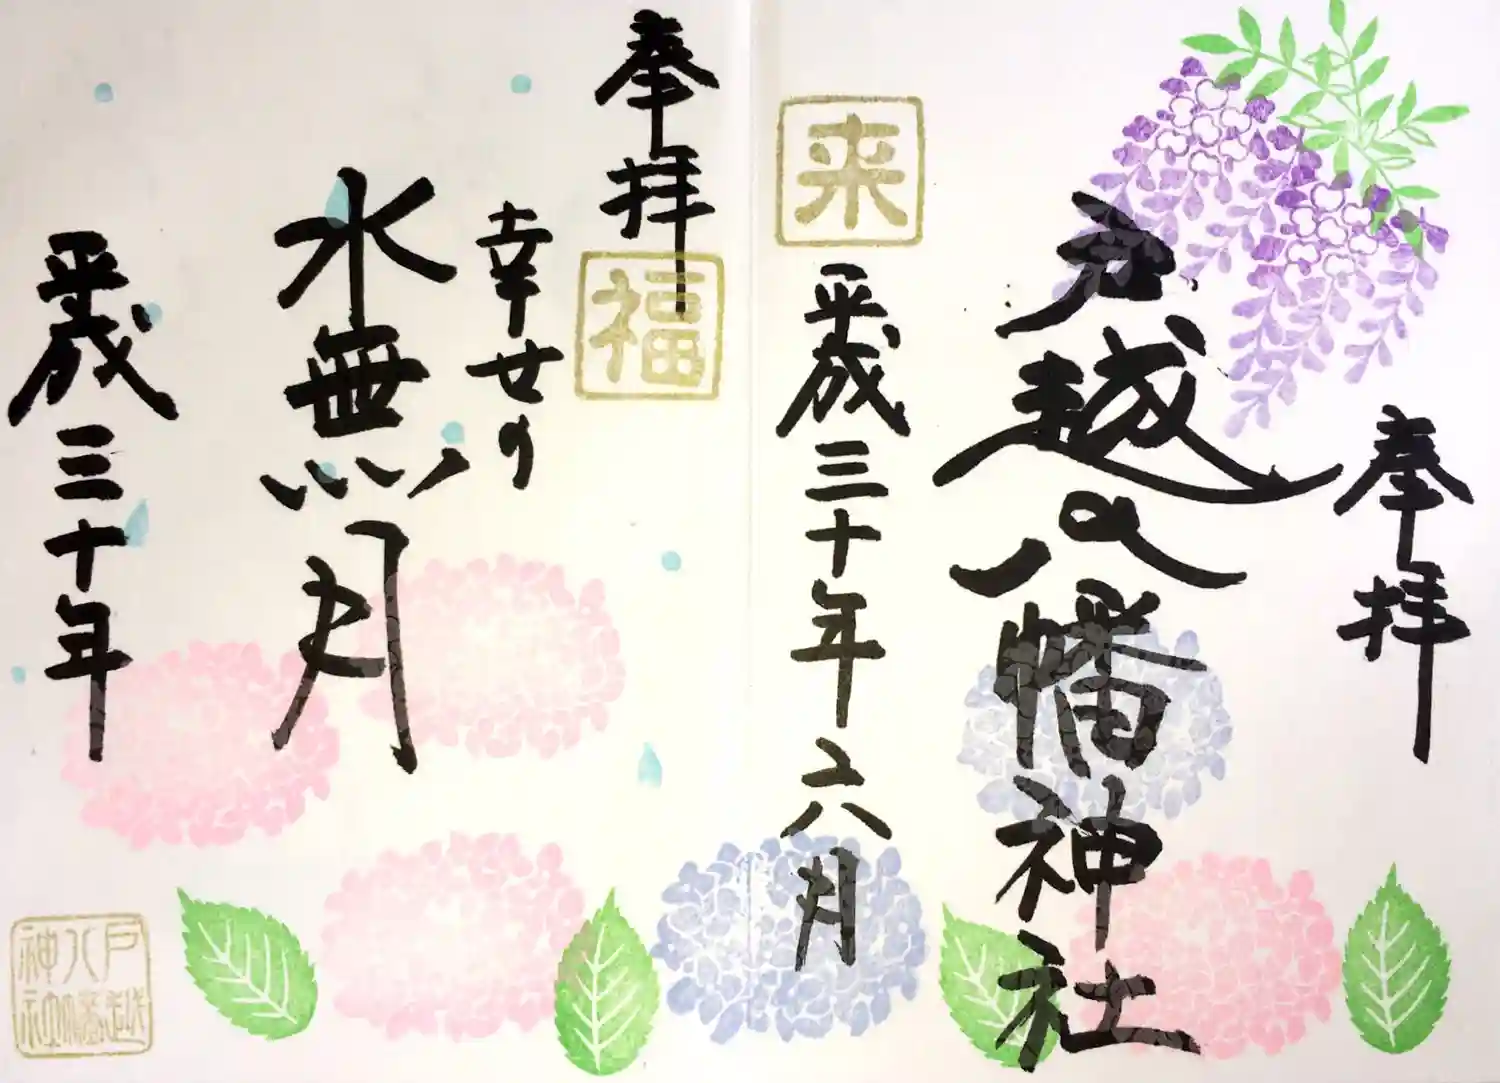 奉拝
戸越八幡神社
来
平成三十年六月
奉拝
福
幸せの
水無月
平成三十年
戸越
八幡
神社